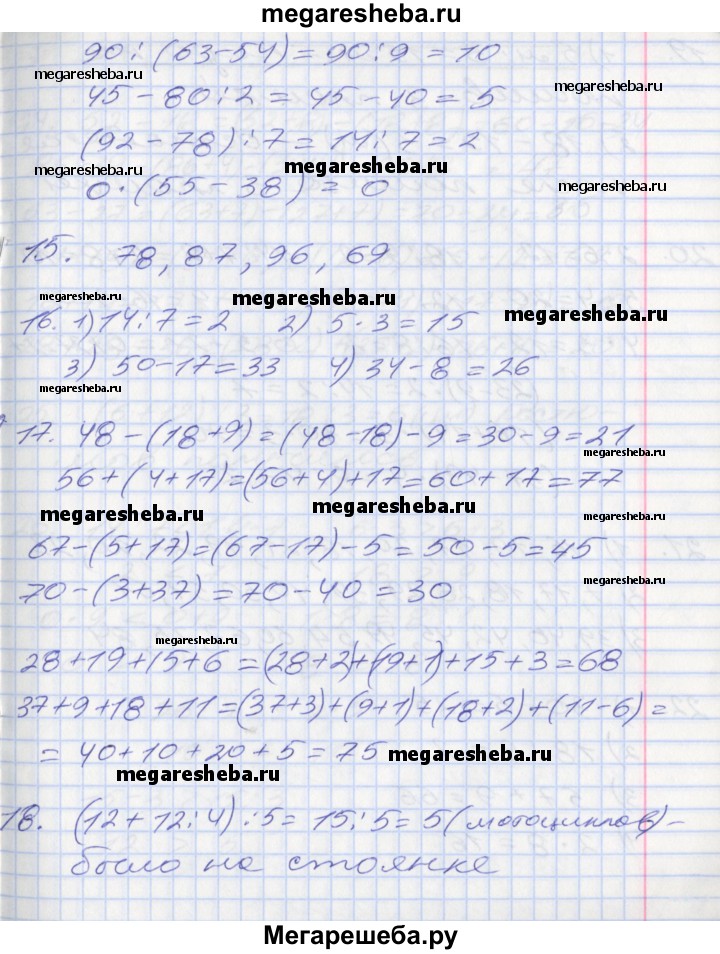 megaresheba.ru
90 : (63-54) = 90 : 9 = 10
megaresheba.ru
megaresheba.ru
45 - 80 : 2 = 45 - 40 = 5
(92 - 78) : 7 = 14 : 7 = 2
megaresheba.ru
megaresheba.ru
megaresheba.ru
0 · (55 - 38) = 0
15. 78, 87, 96, 69
megaresheba.ru
megaresheba.ru
megaresheba.ru
16. 1) 14 : 7 = 2 2) 5 · 3 = 15
3) 50 - 17 = 33 4) 34 - 8 = 26
megaresheba.ru
17. 48 - (18 + 9) = (48 - 18) - 9 = 30 - 9 = 21
megaresheba.ru
56 + (4 + 17) = (56 + 4) + 17 = 60 + 17 = 77
megaresheba.ru
megaresheba.ru
67 - (5 + 17) = (67 - 17) - 5 = 50 - 5 = 45
megaresheba.ru
70 - (3 + 37) = 70 - 40 = 30
megaresheba.ru
28 + 19 + 15 + 6 = (28 + 2) + (19 + 1) + 15 + 3 = 68
37 + 9 + 18 + 11 = (37 + 3) + (9 + 1) + (18 + 2) + (11 - 6) =
= 40 + 10 + 20 + 5 = 75
megaresheba.ru
megaresheba.ru
18. (12 + 12 : 4) : 5 = 15 : 5 = 5 (мотоциклов) -
было на стоянке
Мегарешеба.ру